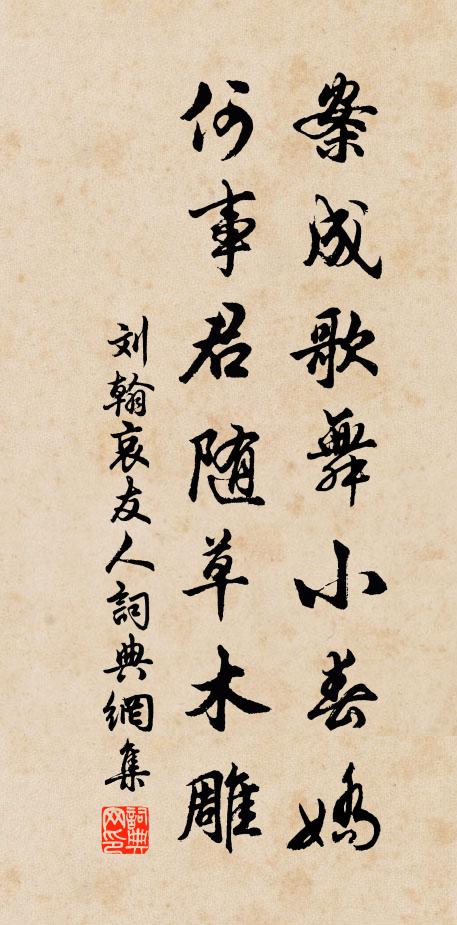 案成歌舞小春嬌
何事君随草木雕
刘翰哀友人詞典網集
詞典网印